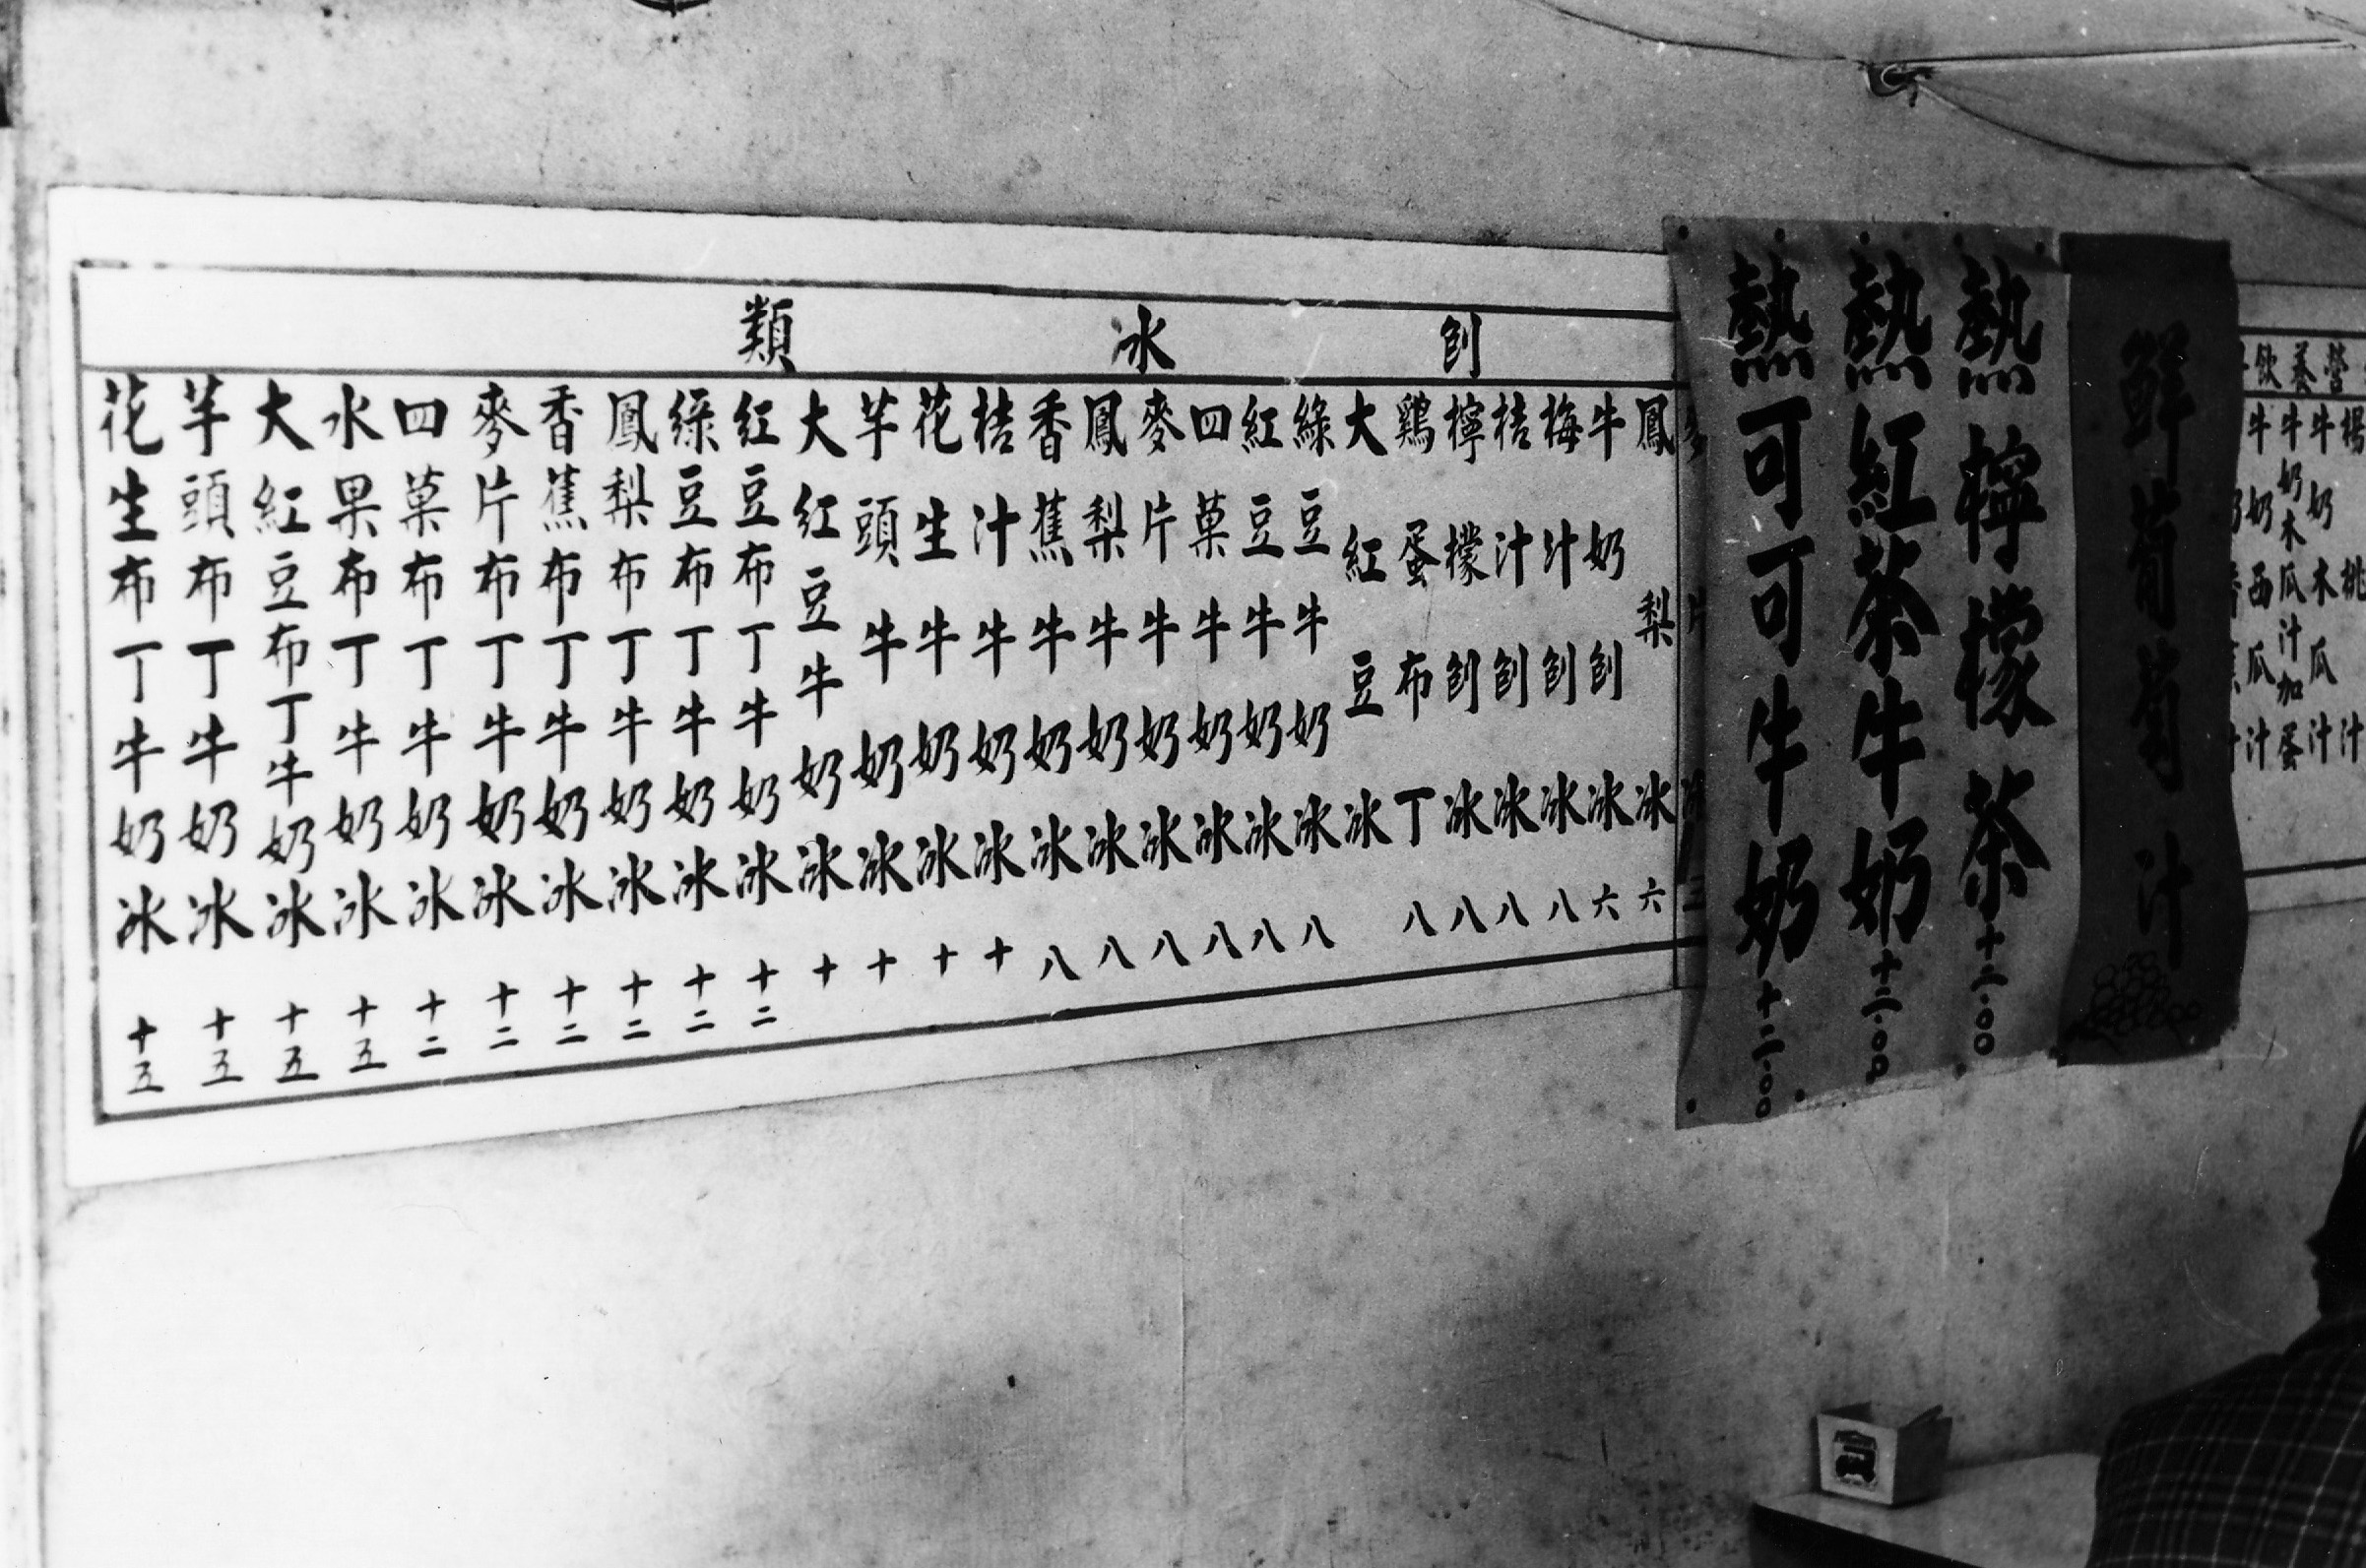 營養飲
楊桃汁
牛奶木瓜汁
牛奶木瓜汁加蛋
牛奶西瓜汁
鮮葡萄汁
熱檸檬茶十二.00
熱紅茶牛奶十二.00
熱可可牛奶十二.00
刨冰類
鳳梨冰六
牛奶刨冰六
梅汁刨冰八
桔汁刨冰八
檸檬刨冰八
鷄蛋布丁八
大紅豆冰
綠豆牛奶冰八
紅豆牛奶冰八
四菓牛奶冰八
麥片牛奶冰八
鳳梨牛奶冰八
香蕉牛奶冰八
桔汁牛奶冰十
花生牛奶冰十
芋頭牛奶冰十
大紅豆牛奶冰十
紅豆布丁牛奶冰十二
綠豆布丁牛奶冰十二
鳳梨布丁牛奶冰十二
香蕉布丁牛奶冰十二
麥片布丁牛奶冰十二
四菓布丁牛奶冰十二
水果布丁牛奶冰十五
大紅豆布丁牛奶冰十五
芋頭布丁牛奶冰十五
花生布丁牛奶冰十五